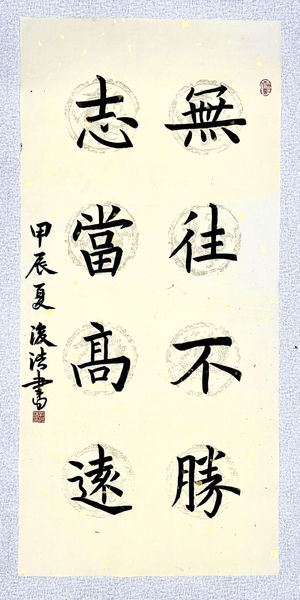 無往不勝
志當高遠
甲辰夏 浚浩書